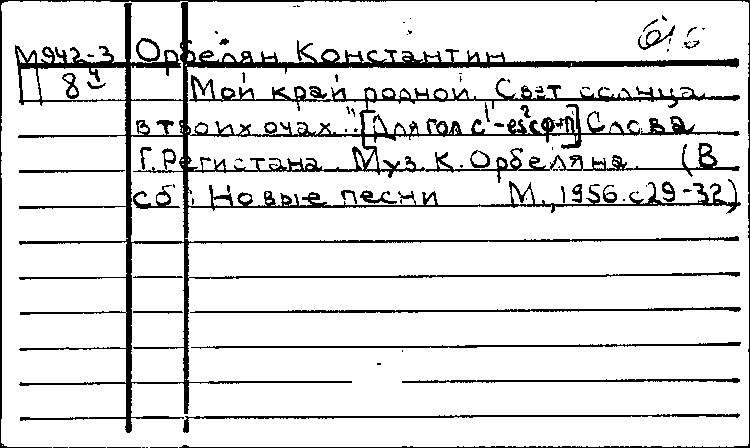 М942-3 Орбелян, Константин
8 ч Мой край родной. Свет солнца
в твоих очах.." [Для гол c¹-es² с ф-п] Слова
Г. Регистана Муз. К. Орбеляна (В
сб: Новые песни М., 1956. с29-32)